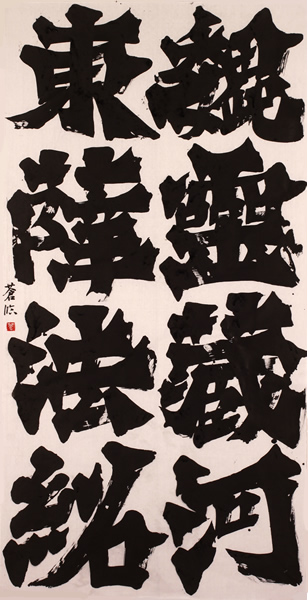 魏靈藏河
東薛法紹
蒼臨